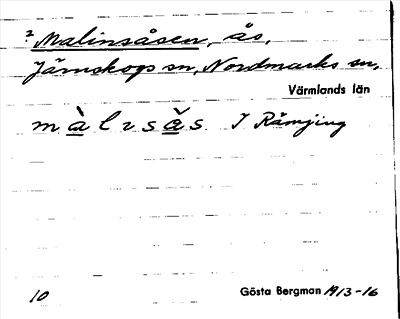 ? Malinsåsen, ås,
Järnskogs sn, Nordmarks sn,
Värmlands län
I Rämjing
10 Gösta Bergman 1913-16